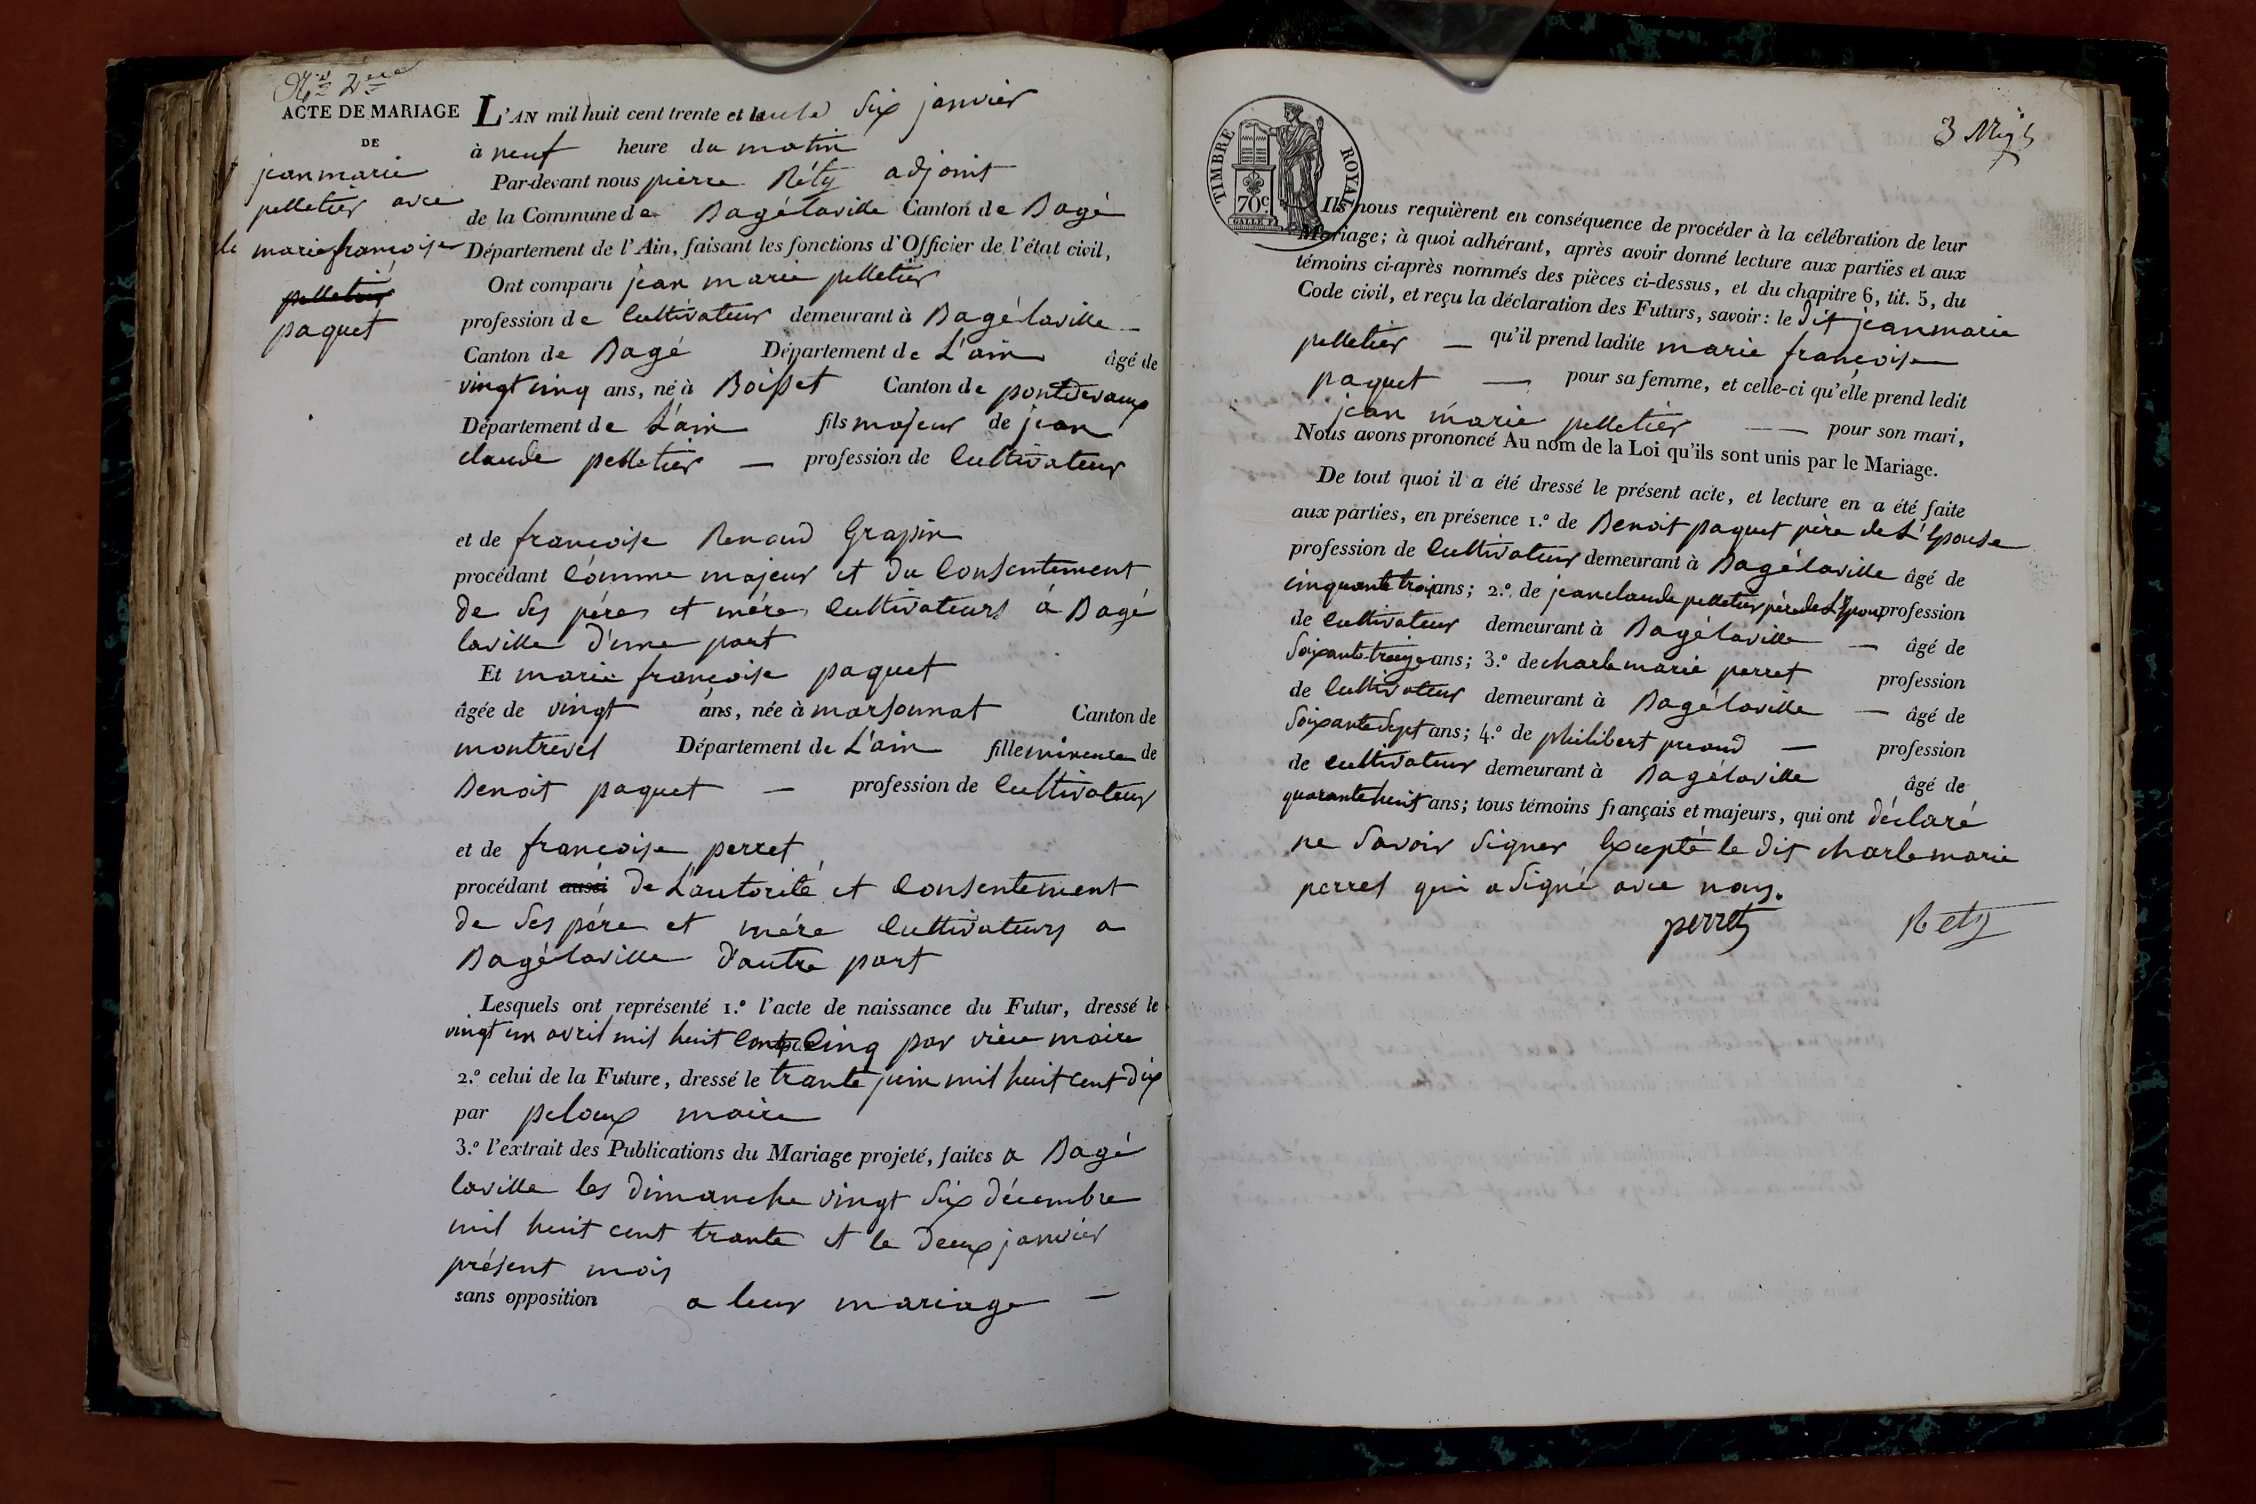 N.º 2eme
ACTE DE MARIAGE
DE
jean marie
pelletier avec
marie françoise
pelletier
paquet
L'AN mil huit cent trente et le six janvier
à neuf heure du matin
Par-devant nous pierre Réty adjoint
de la Commune de Bagélaville Canton de Bagé
Département de l'Ain, faisant les fonctions d'Officier de l'état civil,
Ont comparu jean marie pelletier
profession de Cultivateur demeurant à Bagélaville
Canton de Bagé Département de L'ain âgé de
vingt cinq ans, né à Boisset Canton de pontdevaux
Département de L'ain fils majeur de jean
claude pelletier — profession de Cultivateur
et de françoise Renoud Grapin
procédant Comme majeur et du Consentement
de ses péres et mére, Cultivateurs á Bagé
laville d'une part
Et marie françoise paquet
âgée de vingt ans, née à marsonnat Canton de
montrevel Département de L'ain fille mineure de
Benoit paquet — profession de Cultivateur
et de françoise perret
procédant aussi de L'autorité et Consentement
de ses pére et mére Cultivateurs a
Bagélaville d'autre part
Lesquels ont représenté 1.º l'acte de naissance du Futur, dressé le
vingt un avril mil huit Cent Cinq par vieu maire
2.º celui de la Future, dressé le trante juin mil huit cent dix
par peloux maire
3.º l'extrait des Publications du Mariage projeté, faites a Bagé
laville les dimanche vingt six décembre
mil huit cent trante et le deux janvier
présent mois
sans opposition a leur mariage —
TIMBRE ROYAL
70c
3
Ils nous requièrent en conséquence de procéder à la célébration de leur
Mariage; à quoi adhérant, après avoir donné lecture aux parties et aux
témoins ci-après nommés des pièces ci-dessus, et du chapitre 6, tit. 5, du
Code civil, et reçu la déclaration des Futurs, savoir: le dit jean marie
pelletier — qu'il prend ladite marie françoise
paquet — pour sa femme, et celle-ci qu'elle prend ledit
jean marie pelletier — pour son mari,
Nous avons prononcé Au nom de la Loi qu'ils sont unis par le Mariage.
De tout quoi il a été dressé le présent acte, et lecture en a été faite
aux parties, en présence 1.º de Benoit paquet père de L'Epouse
profession de Cultivateur demeurant à Bagélaville âgé de
cinquante trois ans; 2.º de jean claude pelletier père de L'Epoux profession
de Cultivateur demeurant à Bagélaville — âgé de
soixante-treize ans; 3.º de charle marie perret profession
de Cultivateur demeurant à Bagélaville — âgé de
soixante sept ans; 4.º de philibert preaud — profession
de Cultivateur demeurant à Bagélaville âgé de
quarante huit ans; tous témoins français et majeurs, qui ont déclaré
ne savoir signer Excepté le dit charle marie
perret qui a signé avec nous.
perret Rety